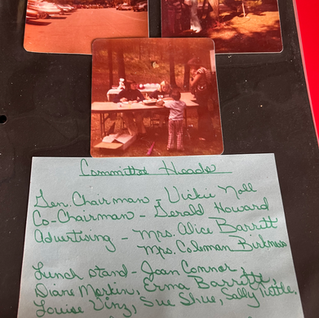 Committee Heads
Gen. Chairman - Vickie Noll
Co-Chairman - Gerald Howard
Advertising - Mrs. Alice Barritt
Mrs. Coleman
Lunch stand - Joan Connor,
Diane Martin, Erma Barritt,
Louise Viry, Sue Shue, Sally Tuttle,